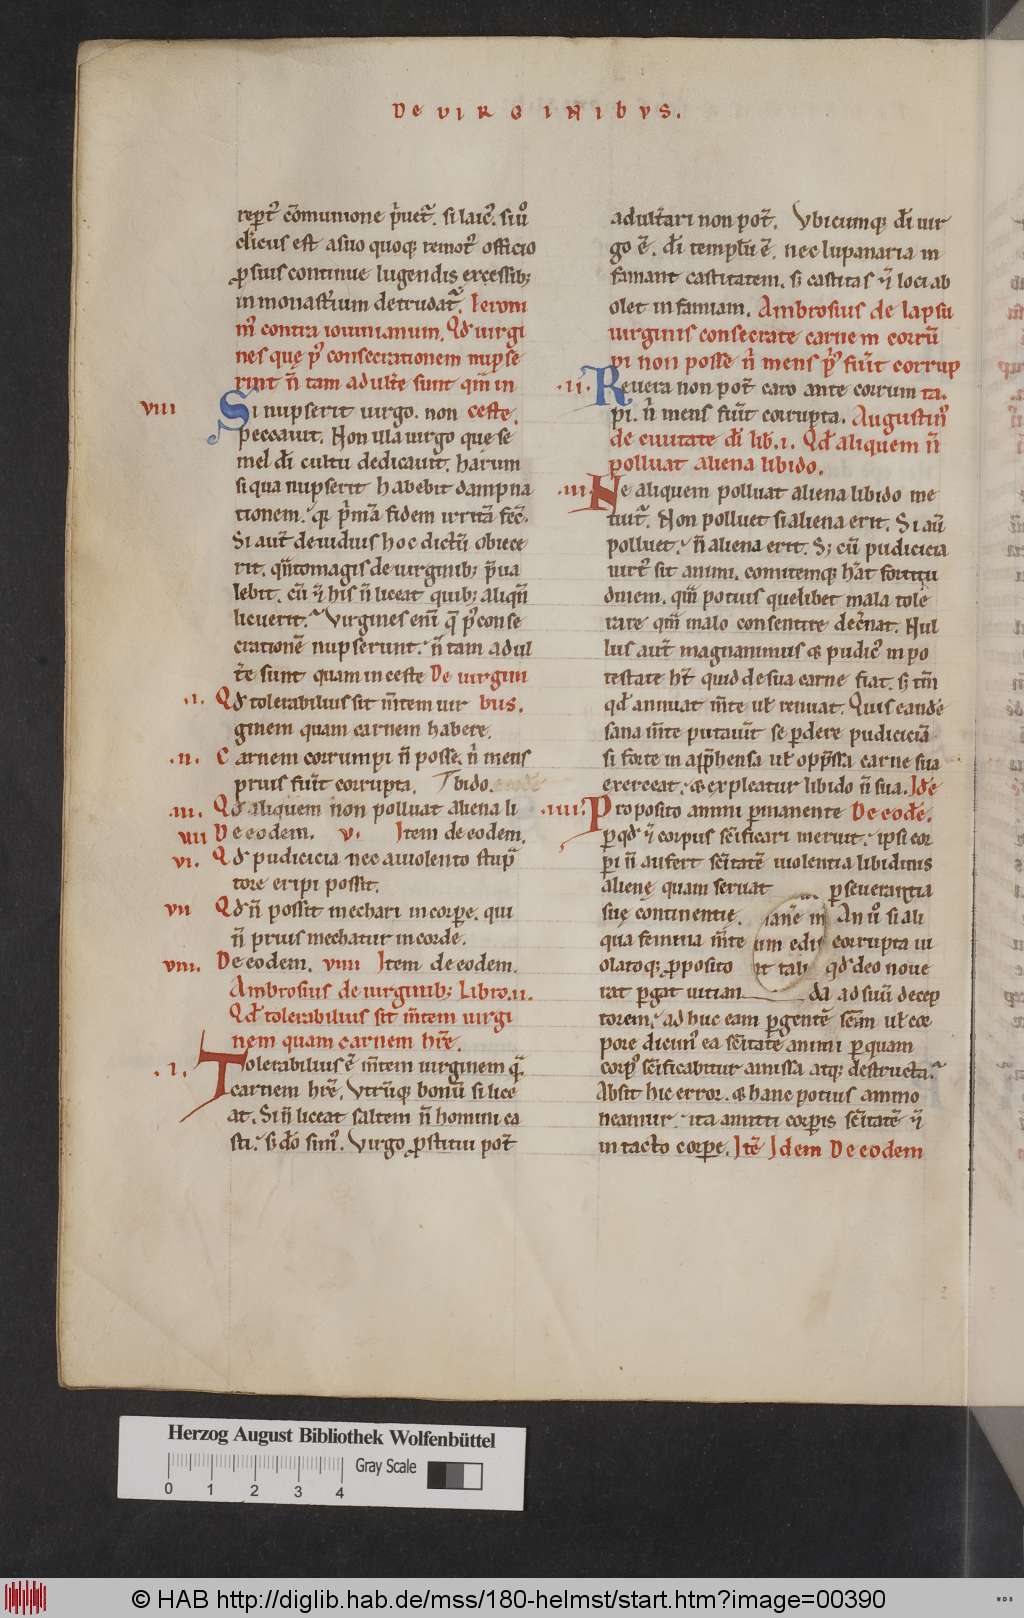 De virginibus.
repert' cōmunione p̍uet᷑. si laic᷒. siu̾
cl̍icus est a suo quoq; remot᷒ officio
ꝓsius continue lugendis excessib;
in monast̍ium detrudat᷑. Ieroni
m᷒ contra iouinianum. Qd̄ uirgi
nes quę p᷒ consecrationem nupse
rint n̄ tam adult̍e sunt qm̄ in
viii
Si nupserit uirgo. non ceste.
peccauit. Non illa uirgo que se
mel dī cultu dedicauit. harum
si qua nupserit habebit dampna
tionem. q p̍mā fidem irritā fec̄.
Si aut̄ de uiduis hoc dictū obiece
rit. qn̄to magis de uirginib; p̄ua
lebit. cū ⁊ his n̄ liceat quib; aliqn̄
licuerit. Virgines eni̅ q̄ p᷒ conse
crationē nupserunt. n̄ tam adul
t̍e sunt quam inceste De uirgini
.i. Qd̄ tolerabilius sit m̄tem uir bus.
ginem quam carnem habere.
.ii. Carnem corrumpi n̄ posse. n̍ mens
prius fuīt corrupta. bido.
.iii. Qd̄ aliquem non polluat aliena li
iiii De eodem. v. Item de eodem.
vi. Qd̄ pudicicia nec a uiolento stup̄
tore eripi possit.
vii Qd̄ n̄ possit mechari in corpe. qui
n̄ prius mechatur in corde.
viii. De eodem. viiii Item de eodem.
Ambrosius de uirginib; Libro.ii.
Qd̄ tolerabilius sit m̄tem uirgi
nem quam carnem hr̄e.
.i. Tolerabilius ē m̄tem uirginem q̄
carnem hr̄e. Vtrūq; bonū si lice
at. Si n̄ liceat saltem n̄ homini ca
sti. s; dō sim᷒. Virgo ꝓstitui pot̄
adult̍ari non pot̄. Vbicumq; dī uir
go ē. dī templū ē. nec lupanaria in
famant castitatem. s; castitas ⁊ loci ab
olet infamiam. Ambrosius de lapsu
uirginis consecrate carnem corrū
pi non posse n̍ mens p᷒ fuīt corrup
.ii. Reuera non pot̄ caro ante corrum ta.
pi. n̍ mens fuīt corrupta. Augustin᷒
de ciuitate dī lib̄.i. Qd̄ aliquem n̄
polluat aliena libido.
.iii. Ne aliquem polluat aliena libido me
tuit᷑. Non polluet si aliena erit. Si aū
polluet. n̄ aliena erit. S; cū pudicicia
uirt᷒ sit animi. comitemq; hāt fortitu
dinem. qm̄ potius quelibet mala tole
rare qm̄ malo consentire dec̍nat. Nul
lus aut̄ magnanimus ⁊ pudic᷒ in po
testate h̄t quid de sua carne fiat. s; tm̄
qd̄ annuat m̄te ul̄ renuat. Quis eandē
sana m̄te putauīt se p̱dere pudiciciā
si forte in app̄hensa ul̄ opp̄ssa carne sua
exerceat. ⁊ expleatur libido n̄ sua. Idē
.iiii. Proposito animi p̱manente De eodē.
p̱ qd̄ ⁊ corpus sc̄ificari meruit. ipsi cor
p̱i n̄ aufert sc̄itatē uiolentia libidinis
alienę quam seruat p̱seuerantia
suę continentię. An u̾ si ali
qua femina m̄te corrupta ui
olatoq; ꝓposito qd̄ deo noue
rat p̱gat uitian da ad suū decep
torem. ad huc eam p̱gentē sc̄am ul̄ cor
pore dicim᷒ ea sc̄itate animi p̱ quam
corp᷒ sc̄ificabitur amissa atq; destructa.
Absit hic error. ⁊ hanc potius ammo
neamur. ita amitti corp̱is sc̄itatē ⁊
intacto corp̱e. Itē Idem De eodem
Herzog August Bibliothek Wolfenbüttel
Gray Scale
0 1 2 3 4
© HAB http://diglib.hab.de/mss/180-helmst/start.htm?image=00390